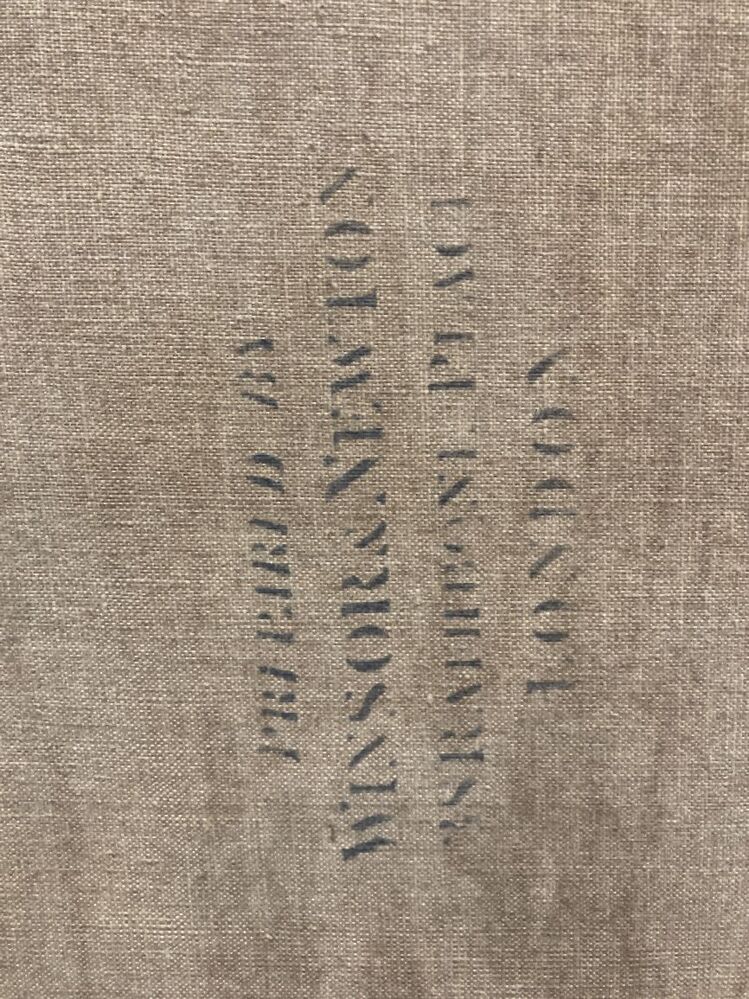 PREPARED BY
WINSOR & NEWTON
RATHBONE PLACE
LONDON